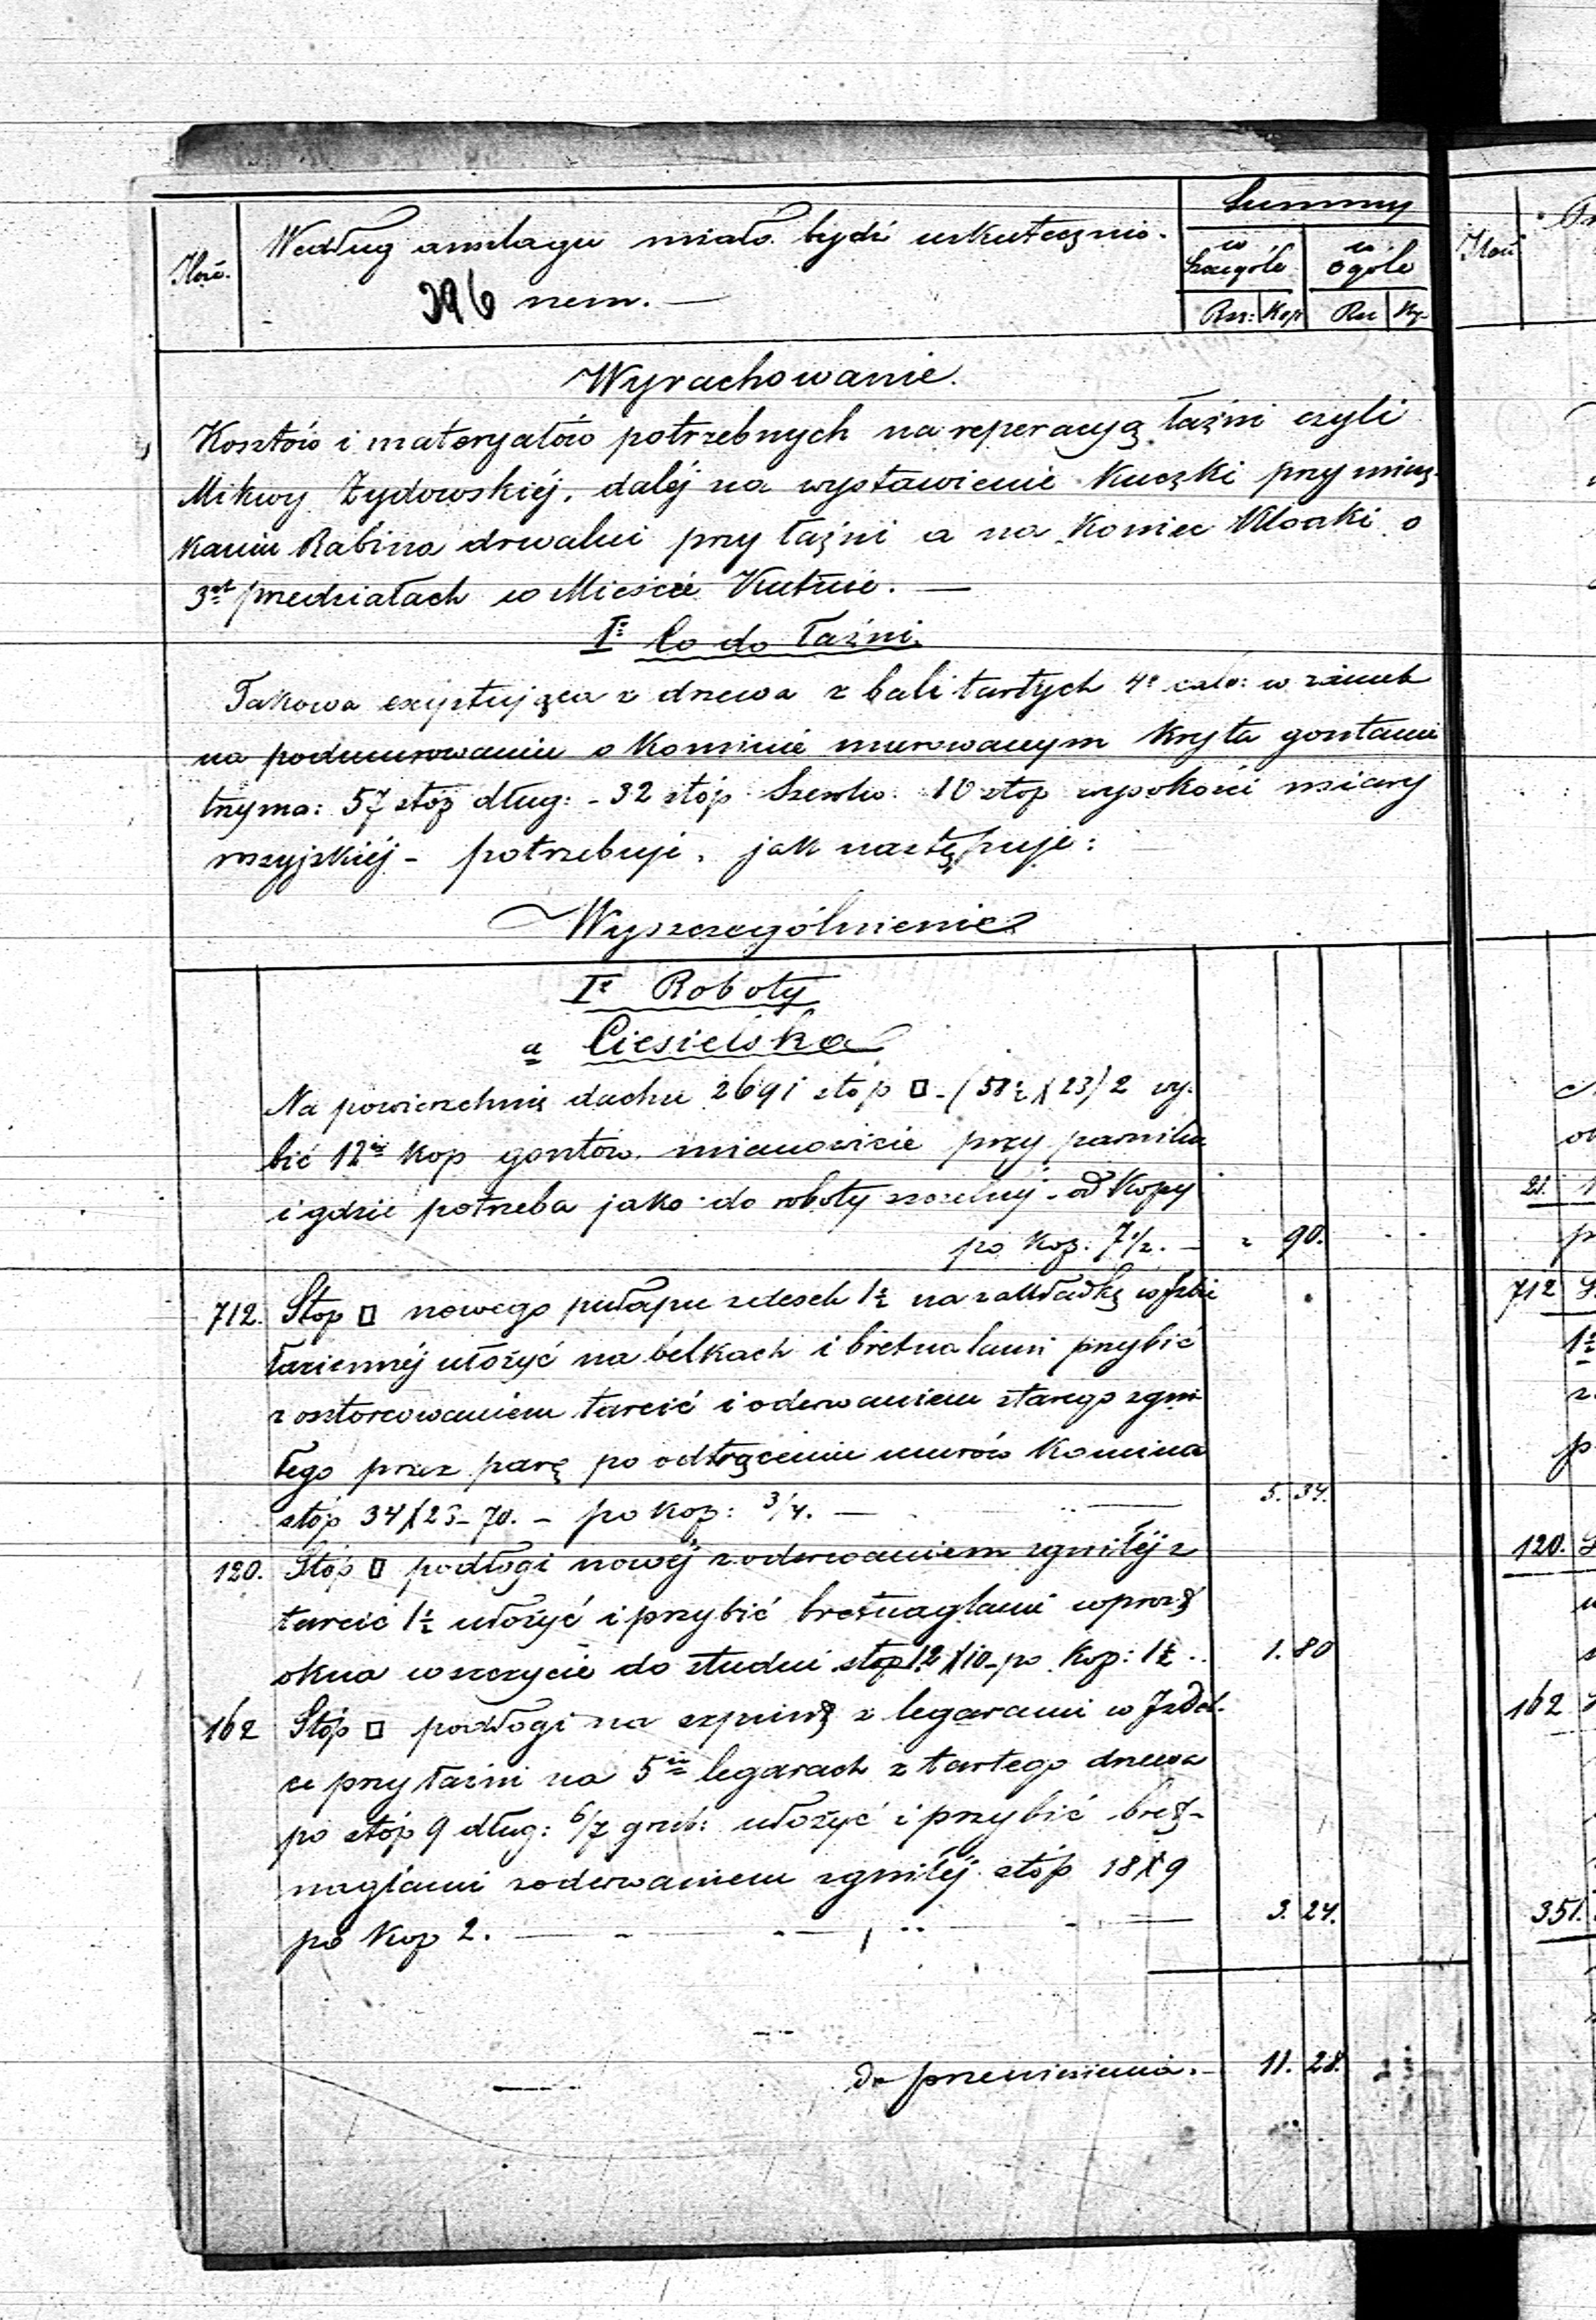 Ilość.
Według anszlagu miało być uskutecznio-
nem. —
396
Summy
w szczególe
w ogóle
Rsr: Kop
Rsr Kop
Wyrachowanie.
Kosztów i materyałów potrzebnych na reperacyą łaźni czyli
Mikwy Żydowskiéj, daléj na wystawienie Kuczki przy miesz-
kaniu Rabina drwalni przy łaźni a na koniec Kloaki o
3ch przedziałach w Mieście Kutnie. —
Ie Co do Łaźni.
Takowa exystująca z drzewa z bali tartych 4o calo: w zamek
na podmurowaniu o Kominie murowanym kryta gontami
trzyma: 57 stóp dług: - 32 stóp Szerok: 10 stop wysokości miary
rossyjskiéj - potrzebuje, jak następuje:
Wyszczególnienie
Ie Roboty
a Ciesielska
Na powierzchnię dachu 2691 stóp □ - (58½ X 23) 2 wy-
bić 12u kop gontów mianowicie przy parniku
i gdzie potrzeba jako do roboty - od Kopy
po Kop: 7½. — " 90.
712. Stop □ nowego pułapu z desek 1½ na zakładkę w Izbie
łaziennéj ułożyć na belkach i bretnalami przybić
z osztorcowaniem tarcic i oderwaniem starego zgni-
łego przez parę po odtrąceniu murów Komina
stóp 34 X 23 - 70. - po kop: ¾. — 5. 34.
120. Stóp □ podłogi nowéj z oderwaniem zgniłéj z
tarcic 1½ ułożyć i przybić bretnaglami
okna w szczycie do studni stop 12 X 10 - po Kop: 1½ .. 1. 80
162 Stóp □ podłogi na z legarami w Izdeb-
ce przy łaźni na 5iu legarach z tartego drzewa
po stóp 9 dług: 6/7 grub: ułożyć i przybić bret-
naglami z oderwaniem zgniłéj stóp 18 X 9
po Kop 2. — 3. 24.
do przeniesienia. - 11. 28.
Ilość
21.
712
120.
162
351.